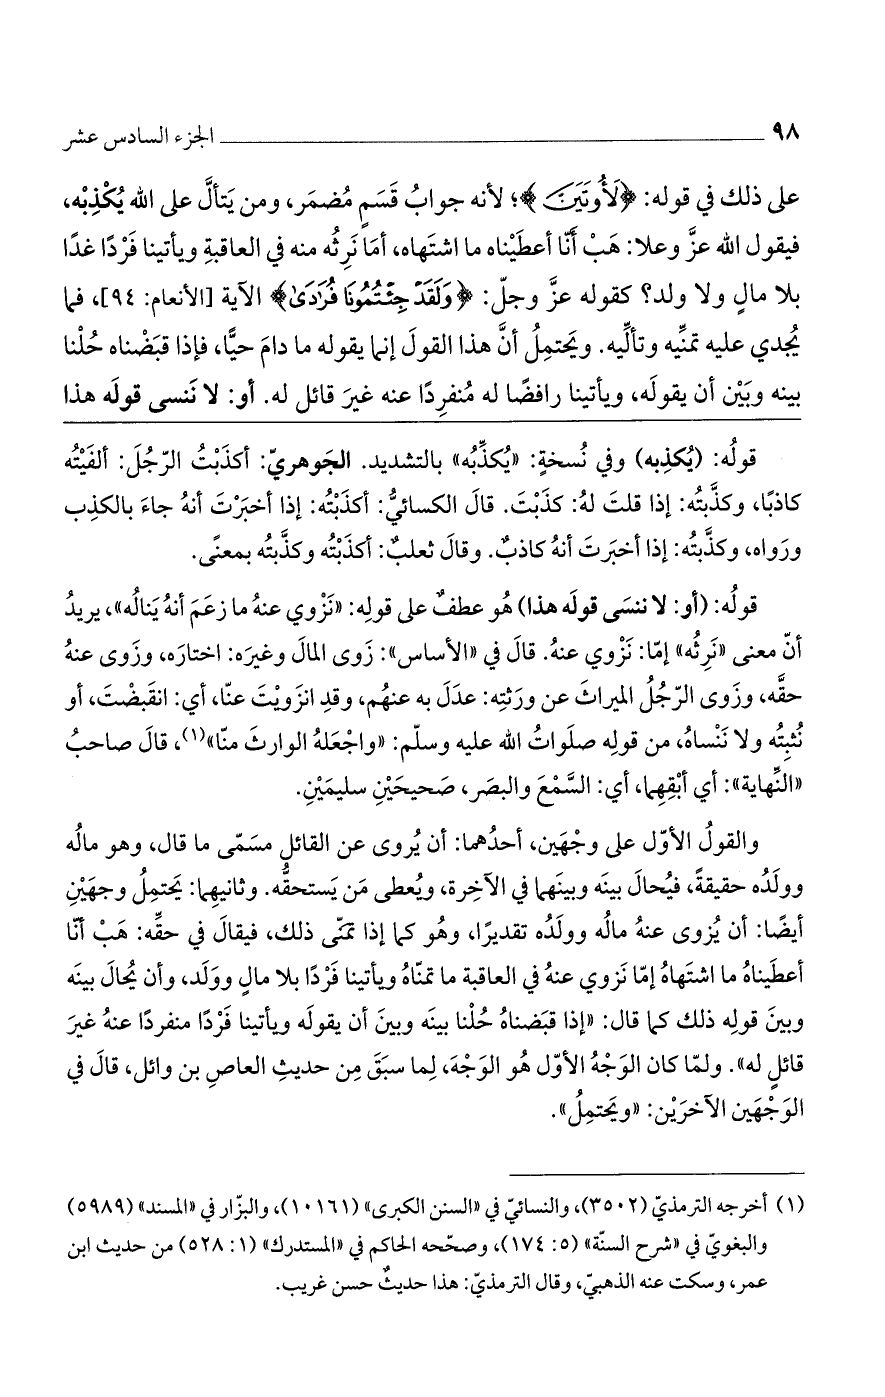 ٩٨ ــــــــ الجزء السادس عشر
على ذلك في قوله: ﴿لَأُوتَيَنَّ﴾؛ لأنه جوابُ قَسَمٍ مُضمَر، ومن يَتألَّ على الله يُكْذِبْه،
فيقول الله عزَّ وعلا: هَبْ أنّا أعطيْناه ما اشتَهاه، أمَا نَرِثُه منه في العاقبةِ ويأتينا فَرْدًا غدًا
بلا مالٍ ولا ولد؟ كقوله عزَّ وجلّ: ﴿وَلَقَدْ جِئْتُمُونَا فُرَادَىٰ﴾ الآية [الأنعام: ٩٤]، فما
يُجدي عليه تمنِّيه وتألِّيه. ويَحتمِلُ أنَّ هذا القولَ إنما يقوله ما دامَ حيًّا، فإذا قبَضْناه حُلْنا
بينه وبَيْن أن يقولَه، ويأتينا رافضًا له مُنفرِدًا عنه غيرَ قائل له. أو: لا نَنسى قولَه هذا
قولُه: (يُكذِبه) وفي نُسخةٍ: «يُكذِّبُه» بالتشديد. الجَوهريّ: أكذَبْتُ الرّجُلَ: ألفَيْتُه
كاذبًا، وكذَّبتُه: إذا قلتَ لهُ: كذَبْتَ. قالَ الكسائيُّ: أكذَبْتُه: إذا أخبَرْتَ أنهُ جاءَ بالكذِب
ورَواه، وكذَّبتُه: إذا أخبَرتَ أنهُ كاذبٌ. وقالَ ثعلبٌ: أكذَبْتُه وكذَّبتُه بمعنًى.
قولُه: (أو: لا ننسَى قولَه هذا) هُو عطفٌ على قولِه: «نَزْوي عنهُ ما زعَمَ أنهُ يَنالُه»، يريدُ
أنّ معنى «نَرِثُه» إمّا: نَزْوي عنهُ. قالَ في «الأساس»: زَوى المالَ وغيرَه: اختارَه، وزَوى عنهُ
حقَّه، وزَوى الرّجُلُ الميراثَ عن ورَثتِه: عدَلَ به عنهُم، وقدِ انزَويْتَ عنّا، أي: انقَبضْتَ، أو
نُثبِتُه ولا نَنْساهُ، من قولِه صلَواتُ الله عليه وسلّم: «واجْعَلهُ الوارثَ منّا»(١)، قالَ صاحبُ
«النِّهاية»: أي أبْقِهِما، أي: السَّمْعَ والبصَر، صَحيحَيْنِ سليمَيْنِ.
والقولُ الأوّل على وجْهَين، أحدُهما: أن يُروى عن القائلِ مسَمّى ما قال، وهو مالُه
وولَدُه حقيقةً، فيُحالَ بينَه وبينَهما في الآخِرة، ويُعطى مَن يَستحقُّه. وثانيهما: يَحتمِلُ وجهَيْنِ
أيضًا: أن يُزوى عنهُ مالُه وولَدُه تقديرًا، وهُو كما إذا تمنّى ذلك، فيقالَ في حقِّه: هَبْ أنّا
أعطَيناهُ ما اشتَهاهُ إمّا نَزوي عنهُ في العاقبة ما تمنّاهُ ويأتينا فَرْدًا بلا مالٍ ووَلَد، وأن يُحالَ بينَه
وبينَ قولِه ذلك كما قال: «إذا قبَضناهُ حُلْنا بينَه وبينَ أن يقولَه ويأتينا فَرْدًا منفردًا عنهُ غيرَ
قائلٍ له». ولمّا كان الوَجْهُ الأوّل هُو الوَجْهَ، لِما سبَقَ مِن حديثِ العاصِ بن وائل، قالَ في
الوَجْهَين الآخرَيْن: «ويَحتمِلُ».
(١) أخرجه الترمذيّ (٣٥٠٢)، والنسائيّ في «السنن الكبرى» (١٠١٦١)، والبزّار في «المسند» (٥٩٨٩)
والبغويّ في «شرح السنّة» (٥: ١٧٤)، وصحّحه الحاكم في «المستدرك» (١: ٥٢٨) من حديث ابن
عمر، وسكت عنه الذهبيّ، وقال الترمذيّ: هذا حديثٌ حسن غريب.